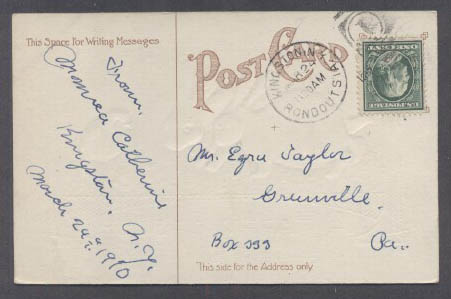 This Space For Writing Messages
From.
Monica Catherine
Kingston. N.Y.
March 24. 1910
POST CARD
KINGSTON, N.Y.
RONDOUT STA.
Mr. Ezra Taylor
Greenville.
Box 333 Pa.
This side for the Address only